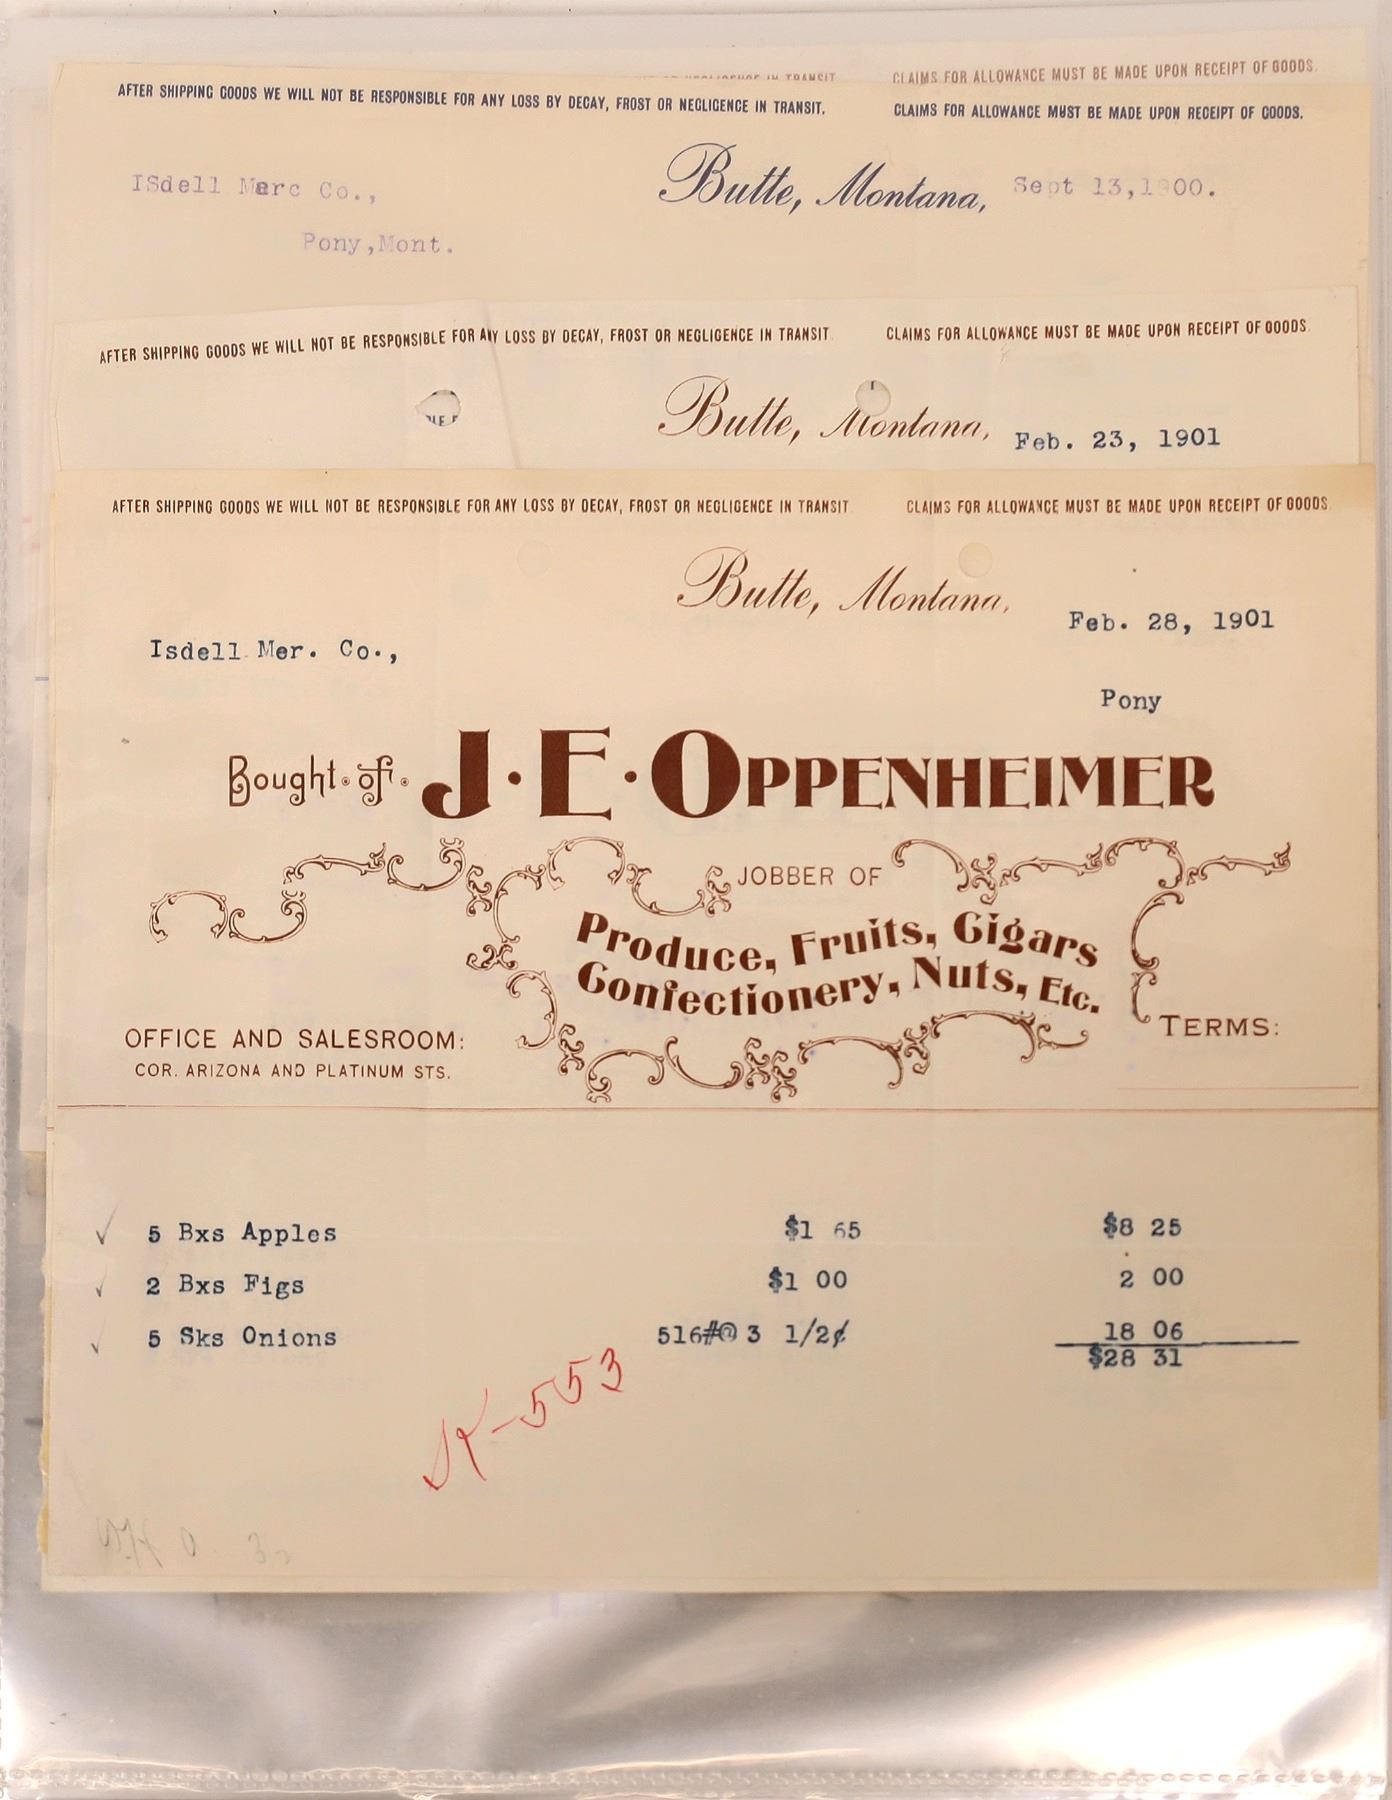 CLAIMS FOR ALLOWANCE MUST BE MADE UPON RECEIPT OF GOODS.
AFTER SHIPPING GOODS WE WILL NOT BE RESPONSIBLE FOR ANY LOSS BY DECAY, FROST OR NEGLIGENCE IN TRANSIT. CLAIMS FOR ALLOWANCE MUST BE MADE UPON RECEIPT OF GOODS.
ISdell Merc Co., Butte, Montana, Sept 13,1900.
Pony,Mont.
AFTER SHIPPING GOODS WE WILL NOT BE RESPONSIBLE FOR ANY LOSS BY DECAY, FROST OR NEGLIGENCE IN TRANSIT. CLAIMS FOR ALLOWANCE MUST BE MADE UPON RECEIPT OF GOODS.
Butte, Montana, Feb. 23, 1901
AFTER SHIPPING GOODS WE WILL NOT BE RESPONSIBLE FOR ANY LOSS BY DECAY, FROST OR NEGLIGENCE IN TRANSIT. CLAIMS FOR ALLOWANCE MUST BE MADE UPON RECEIPT OF GOODS.
Butte, Montana, Feb. 28, 1901
Isdell Mer. Co.,
Pony
Bought of J. E. OPPENHEIMER
JOBBER OF
Produce, Fruits, Cigars
Confectionery, Nuts, Etc.
OFFICE AND SALESROOM: TERMS:
COR. ARIZONA AND PLATINUM STS.
5 Bxs Apples $1 65 $8 25
2 Bxs Figs $1 00 2 00
5 Sks Onions 516#@ 3 1/2¢ 18 06
$28 31